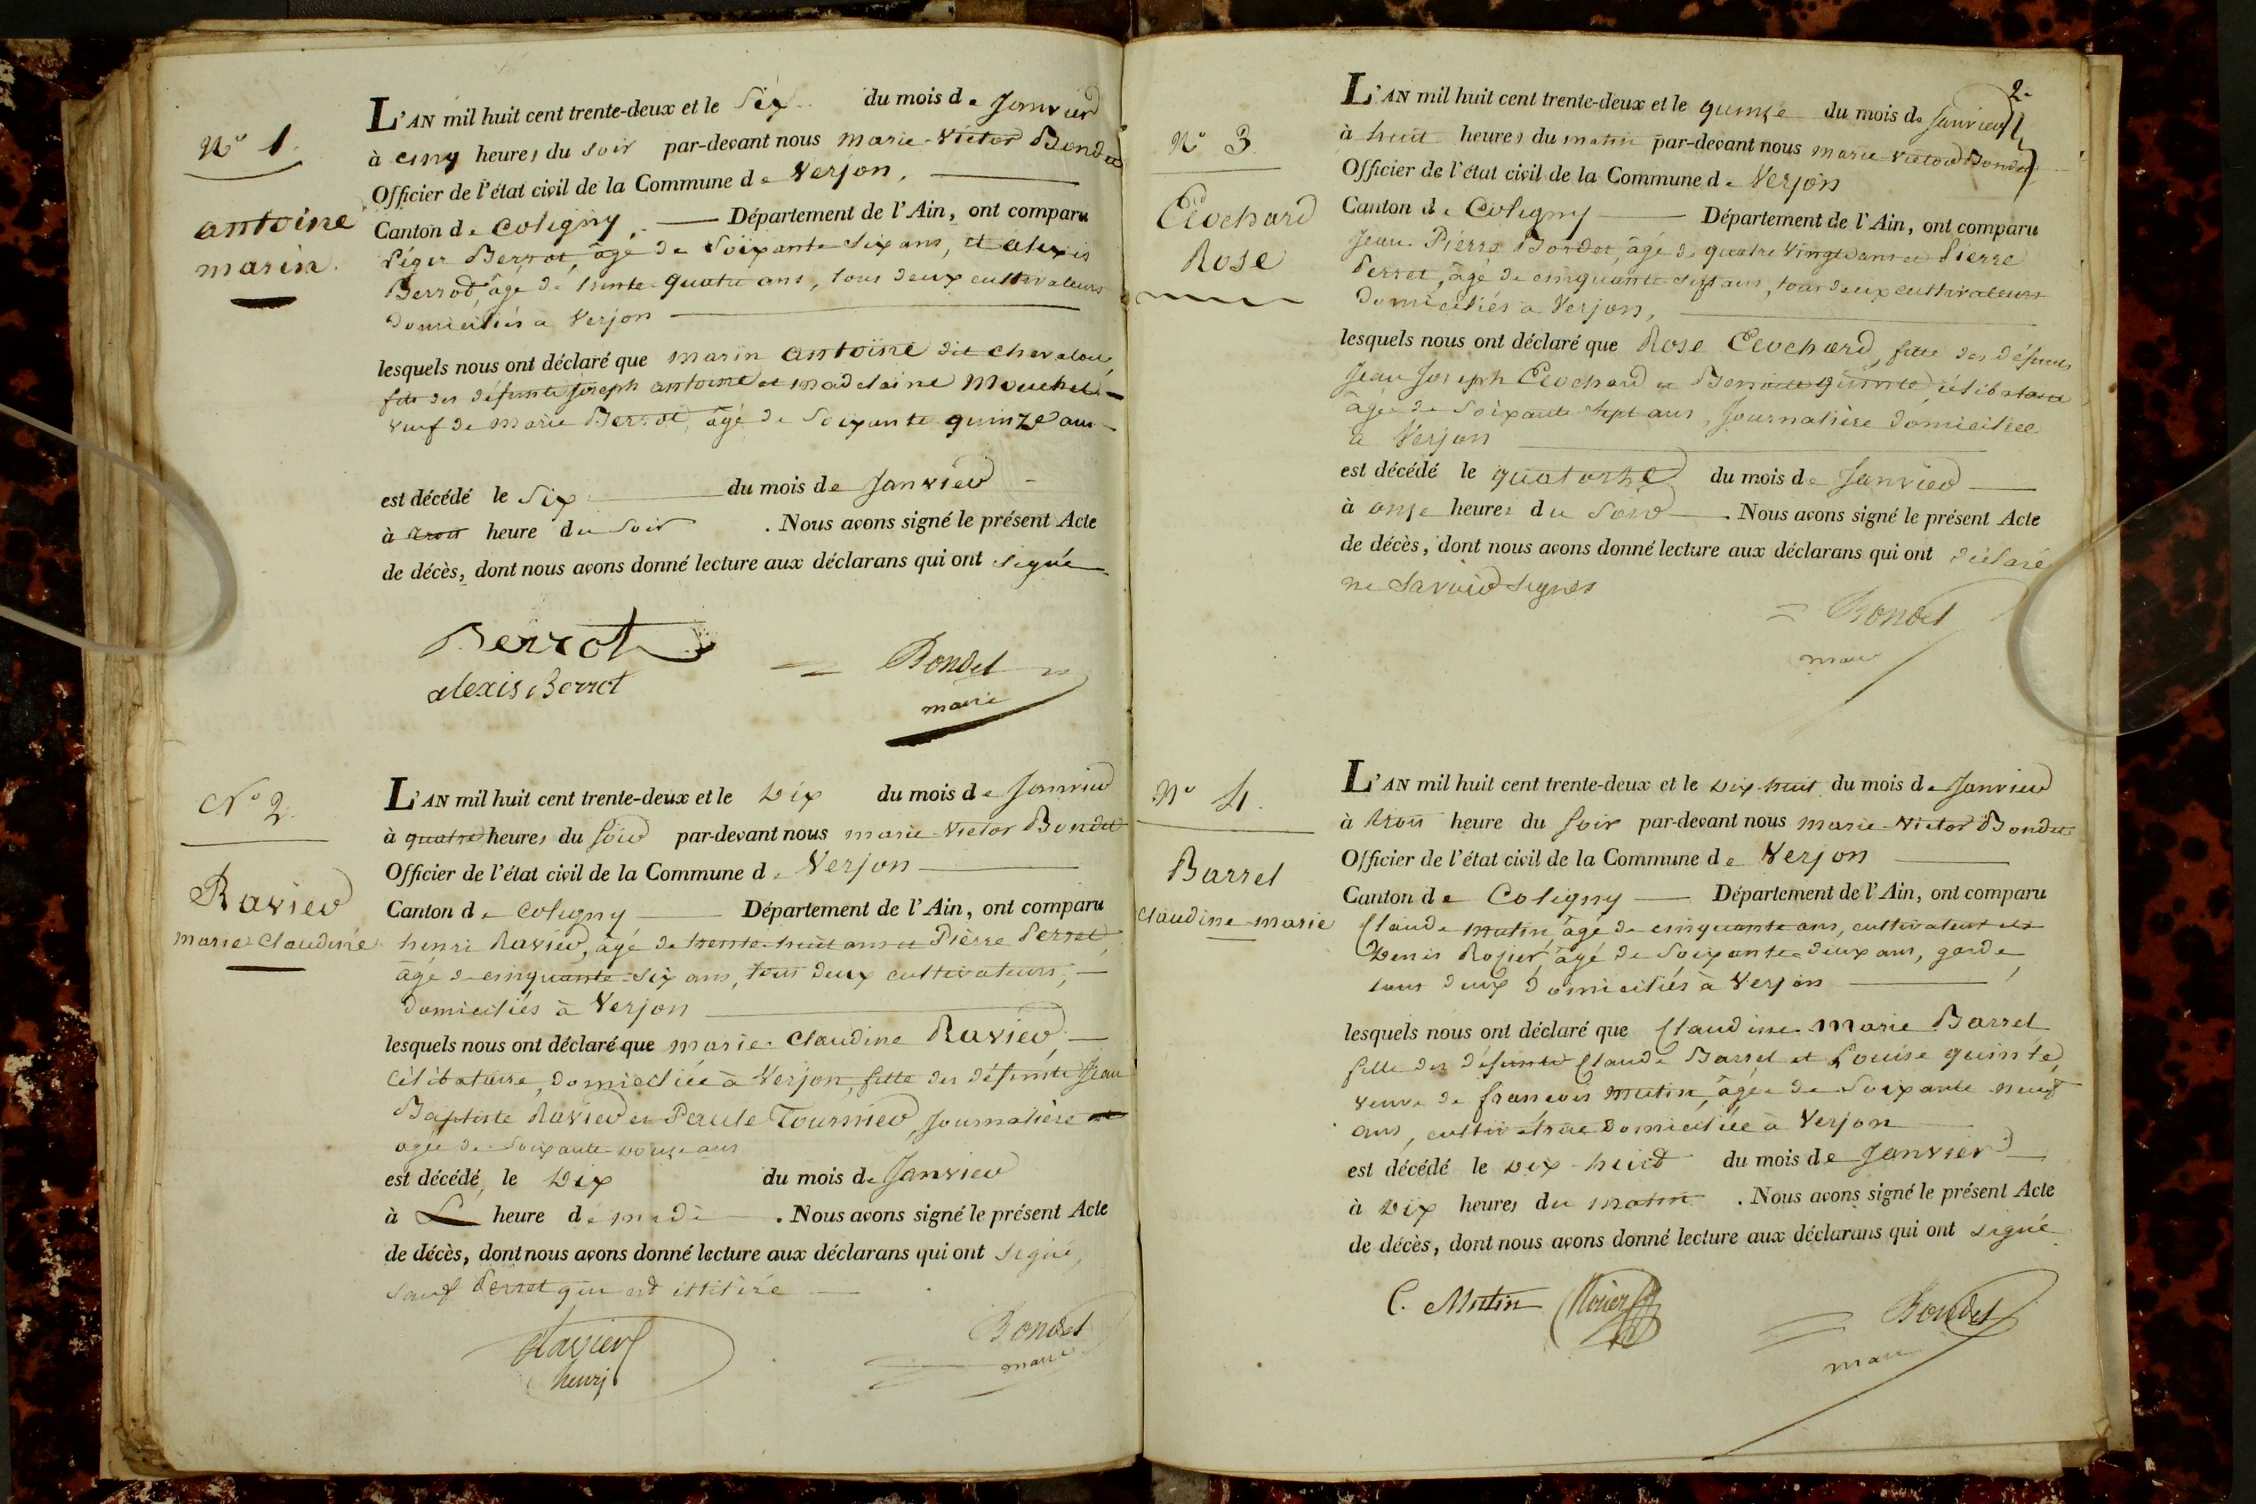 N° 1.
antoine
marin.
L'AN mil huit cent trente-deux et le Six du mois de Janvier
à cinq heures du soir par-devant nous marie-Victor Bondet
Officier de l'état civil de la Commune de Verjon,
Canton de Coligny, Département de l'Ain, ont comparu
Léger Berrot, âgé de Soixante Six ans, et alexis
Berrot, âgé de trente-quatre ans, tous deux cultivateurs
domiciliés à Verjon
lesquels nous ont déclaré que marin antoine dit
fils des défunts joseph antoine et madelaine Mouchet
veuf de marie Berrot, âgé de Soixante quinze ans
est décédé le Six du mois de Janvier
à trois heure du Soir . Nous avons signé le présent Acte
de décès, dont nous avons donné lecture aux déclarans qui ont signé
Berrot
alexis Berrot
Bondet
maire
N° 2.
Ravier
marie Claudine
L'AN mil huit cent trente-deux et le Dix du mois de Janvier
à quatre heures du Soir par-devant nous marie-Victor Bondet
Officier de l'état civil de la Commune de Verjon
Canton de Coligny Département de l'Ain, ont comparu
henri Ravier, âgé de trente-huit ans et Pierre Perret,
âgé de cinquante-six ans, tous deux cultivateurs,
domiciliés à Verjon
lesquels nous ont déclaré que marie Claudine Ravier,
célibataire, domiciliée à Verjon, fille des défunts Jean
Baptiste Ravier et Perule Tournier, Journalière
agée de Soixante douze ans
est décédé le Dix du mois de Janvier
à L heure de midi . Nous avons signé le présent Acte
de décès, dont nous avons donné lecture aux déclarans qui ont signé,
sauf Perret qui est illitéré
Ravier
henri
Bondet
maire
2.
N° 3
Clochard
Rose
L'AN mil huit cent trente-deux et le quinze du mois de Janvier
à huit heures du matin par-devant nous marie-Victor Bondet
Officier de l'état civil de la Commune de Verjon
Canton de Coligny Département de l'Ain, ont comparu
Jean-Pierre Bordet, âgé de quatre Vingt ans et Pierre
Perret, âgé de cinquante-six ans, tous deux cultivateurs
domiciliés à Verjon,
lesquels nous ont déclaré que Rose Clochard, fille des défunts
Jean Joseph Clochard et quinte, célibataire
âgée de Soixante Sept ans, Journalière domiciliée
à Verjon
est décédé le quatorze du mois de Janvier
à onze heures du Soir . Nous avons signé le présent Acte
de décès, dont nous avons donné lecture aux déclarans qui ont déclaré
ne Savoir signer
Bondet
maire
N° 4.
Barret
Claudine-marie
L'AN mil huit cent trente-deux et le Dix huit du mois de Janvier
à trois heure du Soir par-devant nous marie-Victor Bondet
Officier de l'état civil de la Commune de Verjon
Canton de Coligny Département de l'Ain, ont comparu
Claude mutin, âgé de cinquante ans, cultivateur et
Denis Rojier, âgé de Soixante-deux ans, garde,
tous deux domiciliés à Verjon
lesquels nous ont déclaré que Claudine Marie Barret
fille des défunts Claude Barret et Louise quinte,
veuve de françois mutin, âgée de Soixante neuf
ans, cultivatrice domiciliée à Verjon
est décédé le Dix-huit du mois de Janvier
à Dix heures du matin . Nous avons signé le présent Acte
de décès, dont nous avons donné lecture aux déclarans qui ont signé
C. Mutin Rouier
Bondet
maire